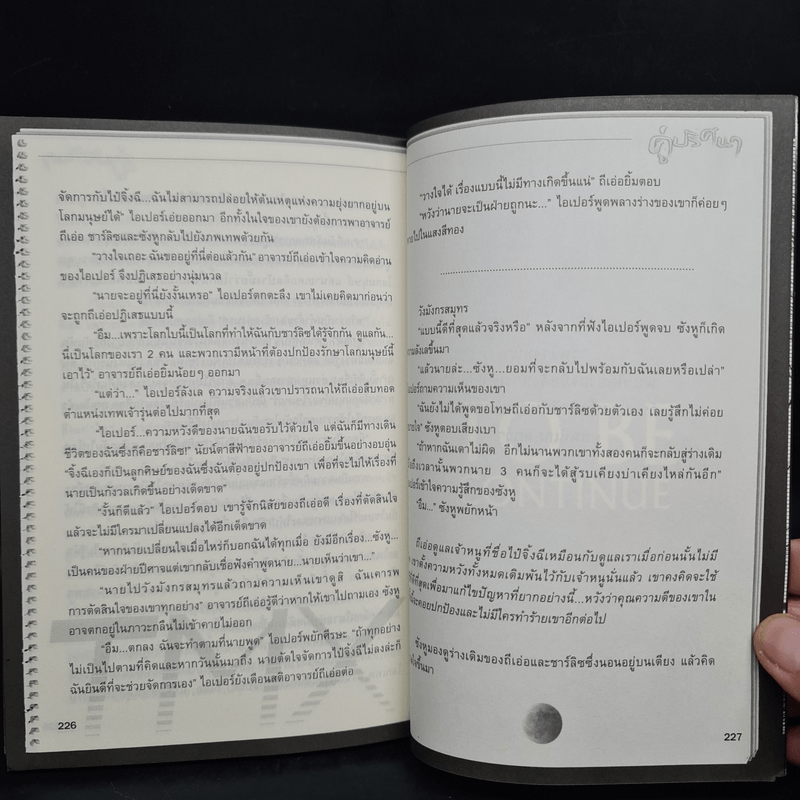 จัดการกับไป๋จิ้งฉี...ฉันไม่สามารถปล่อยให้ต้นเหตุแห่งความยุ่งยากอยู่บน
โลกมนุษย์ได้" ไอเปอร์เอ่ยออกมา อีกทั้งในใจของเขายังต้องการพาอาจารย์
ถีเอ่อ ชาร์ลิซและซังหูกลับไปยังภพเทพด้วยกัน
"วางใจเถอะ ฉันขออยู่ที่นี่ต่อแล้วกัน" อาจารย์ถีเอ่อเข้าใจความคิดอ่าน
ของไอเปอร์ จึงปฏิเสธอย่างนุ่มนวล
"นายจะอยู่ที่นี่ยังงั้นเหรอ" ไอเปอร์ตกตะลึง เขาไม่เคยคิดมาก่อนว่า
จะถูกถีเอ่อปฏิเสธแบบนี้
"อืม...เพราะโลกใบนี้เป็นโลกที่ทำให้ฉันกับชาร์ลิซได้รู้จักกัน ดูแลกัน...
นี่เป็นโลกของเรา 2 คน และพวกเรามีหน้าที่ต้องปกป้องรักษาโลกมนุษย์นี้
เอาไว้" อาจารย์ถีเอ่อยิ้มน้อยๆ ออกมา
"แต่ว่า..." ไอเปอร์ลังเล ความจริงแล้วเขาปรารถนาให้ถีเอ่อสืบทอด
ตำแหน่งเทพเจ้ารุ่นต่อไปมากที่สุด
"ไอเปอร์...ความหวังดีของนายฉันขอรับไว้ด้วยใจ แต่ฉันก็มีทางเดิน
ชีวิตของฉันซึ่งก็คือชาร์ลิซ!" นัยน์ตาสีฟ้าของอาจารย์ถีเอ่อยิ้มขึ้นอย่างอบอุ่น
"จิ้งฉีเองก็เป็นลูกศิษย์ของฉันซึ่งฉันต้องอยู่ปกป้องเขา เพื่อที่จะไม่ให้เรื่องที่
นายเป็นกังวลเกิดขึ้นอย่างเด็ดขาด"
"งั้นก็ดีแล้ว" ไอเปอร์ตอบ เขารู้จักนิสัยของถีเอ่อดี เรื่องที่ตัดสินใจ
แล้วจะไม่มีใครมาเปลี่ยนแปลงได้อีกเด็ดขาด
"หากนายเปลี่ยนใจเมื่อไหร่ก็บอกฉันได้ทุกเมื่อ ยังมีอีกเรื่อง...ซังหู...
เป็นคนของฝ่ายปีศาจแต่เขากลับเชื่อฟังคำพูดนาย...นายเห็นว่าเขา..."
"นายไปวังมังกรสมุทรแล้วถามความเห็นเขาดูสิ ฉันเคารพ
การตัดสินใจของเขาทุกอย่าง" อาจารย์ถีเอ่อรู้ดีว่าหากให้เขาไปถามเอง ซังหู
อาจตกอยู่ในภาวะกลืนไม่เข้าคายไม่ออก
"อืม...ตกลง ฉันจะทำตามที่นายพูด" ไอเปอร์พยักศีรษะ "ถ้าทุกอย่าง
ไม่เป็นไปตามที่คิดและหากวันนั้นมาถึง นายตัดใจจัดการไป๋จิ้งฉีไม่ลงล่ะก็
ฉันยินดีที่จะช่วยจัดการเอง" ไอเปอร์ยังเตือนสติอาจารย์ถีเอ่อต่อ
226
คู่ปริศนา
"วางใจได้ เรื่องแบบนี้ไม่มีทางเกิดขึ้นแน่" ถีเอ่อยิ้มตอบ
"หวังว่านายจะเป็นฝ่ายถูกนะ..." ไอเปอร์พูดพลางร่างของเขาก็ค่อยๆ
ไปในแสงสีทอง
วังมังกรสมุทร
"แบบนี้ดีที่สุดแล้วจริงหรือ" หลังจากที่ฟังไอเปอร์พูดจบ ซังหูก็เกิด
ลังเลขึ้นมา
"แล้วนายล่ะ...ซังหู...ยอมที่จะกลับไปพร้อมกับฉันเลยหรือเปล่า"
ถามความเห็นของเขา
"ฉันยังไม่ได้พูดขอโทษถีเอ่อกับชาร์ลิซด้วยตัวเอง เลยรู้สึกไม่ค่อย
ซังหูตอบเสียงเบา
"ถ้าหากฉันเดาไม่ผิด อีกไม่นานพวกเขาทั้งสองคนก็จะกลับสู่ร่างเดิม
ถึงเวลานั้นพวกนาย 3 คนก็จะได้สู้รบเคียงบ่าเคียงไหล่กันอีก"
เข้าใจความรู้สึกของซังหู
"อืม..." ซังหูพยักหน้า
ถีเอ่อดูแลเจ้าหนูที่ชื่อไป๋จิ้งฉีเหมือนกับดูแลเราเมื่อก่อนนั้นไม่มี
เขาตั้งความหวังทั้งหมดเดิมพันไว้กับเจ้าหนูนั่นแล้ว เขาคงคิดจะใช้
ที่สุดเพื่อมาแก้ไขปัญหาที่ยากอย่างนี้...หวังว่าคุณความดีของเขาใน
จะคอยปกป้องและไม่มีใครทำร้ายเขาอีกต่อไป
ซังหูมองดูร่างเดิมของถีเอ่อและชาร์ลิซซึ่งนอนอยู่บนเตียง แล้วคิด
ขึ้นมา
227